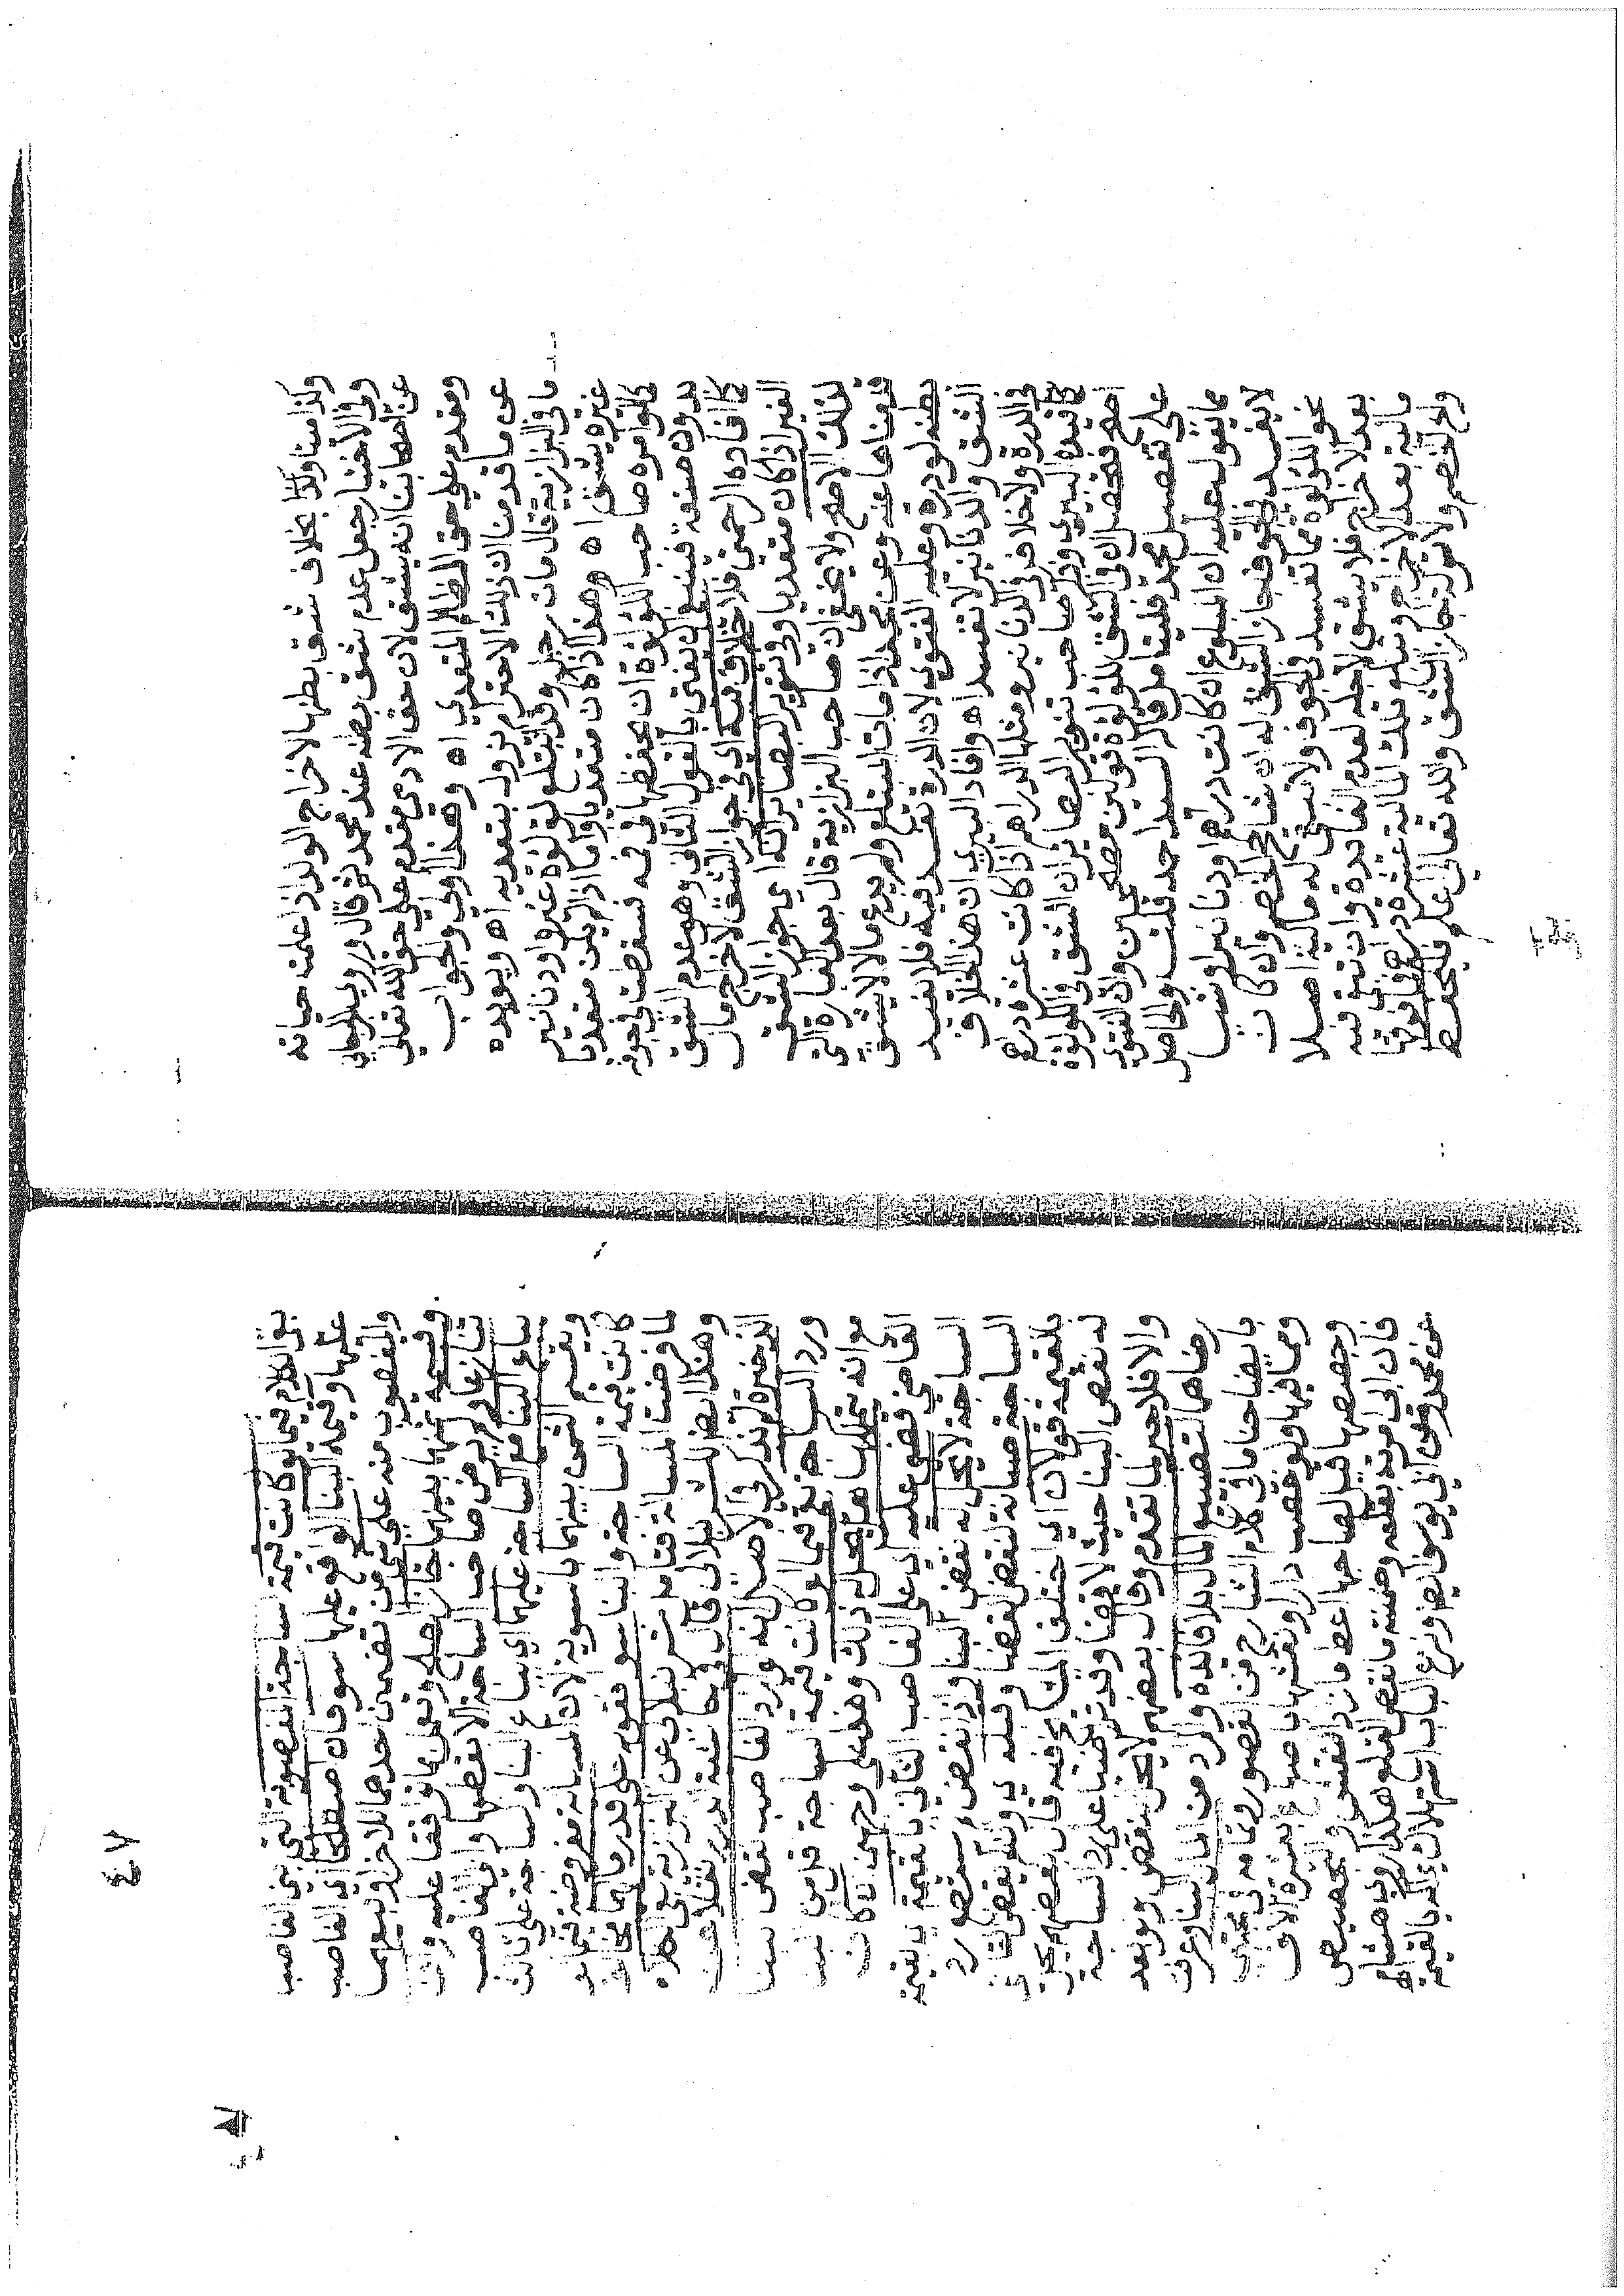 وكذا ميتا وكذا بخلاف شق بطنها لاخراج الولد اذا علمت حياته
وفي الاختيار جعل عدم شق بطنه عند محمد ثم قال وروى الجرجاني
عن اصحابنا انه يشق لان حق الادمي مقدم على حق الله تعالى
ومقدم على حق الظالم المتعدي اه وهذا اولى والجواب
عن ما قدمنا ان ذلك الاحترام يزول بتعديه اه ويؤيده
ما في البزازية قال مات رجل وقد ابتلع لؤلؤة غيره او دنانير
غيره يشق اه وهذا اذا كان متعديا واما اذا لم يكن متعديا
كما لو امره صاحب اللؤلؤة ان يحفظها في فمه فسقطت في جوفه
بدون صنعه فينبغي ان يفتى بالقول الثاني وهو عدم الشق
كما افاده الرحمتي فلا خلاف فيه اي في جواز الشق لاخراج مال
الغير اذا كان متعديا وفي تنوير البصاير انه اي جواز الشق
لذلك الاصح ولا يخفى ان صاحب البزازية قال بعد العبارة التي
قدمناها عنه وعن محمد اذا مات المبتلع ولم يدع مالا لا يشق
بطنه لو درة وعليه الفتوى لان الدرة تفسد فيه فلا يفيد
الشق والدنانير لا تفسد اه وافاد البيري ان هذا الخلاف
في الدرة ولا خلاف في الدنانير ومثلها الدراهم اذا كانت عشرة دراهم
كما قيده البيري وذكر صاحب تنوير البصاير ان الشق في اللؤلؤة
اصح فتحصل ان في الشق للؤلؤة قولين مصححين وان الفتوى
على تفصيل محمد فليتامل قاله السيد احمد قلت والحاصل
مما يقول عليه ان المبلوع ان كانت دراهم او دنانير او شيا
لا يفسد في الجوف فيجاز الشق له ان شا الخصم وان كان
نحو اللؤلؤة مما تفسد في الجوف ولا تبقى له مالية اصلا
بعد الاخراج فلا يشق لاجله لعدم الفايدة وان بقي فيه
مالية بعد الاخراج تلك المالية عشرة دراهم فما فوقها
الخصم ولا الشق والله تعالى اعلم فليحفظ
بقي الكلام فيما لو كانت قيمة ساحة المغصوبة التي بنى الغاصب
عليها وقيمة البنا الواقع عليها سوا فان اصطلحا اي الغاصب
والمغصوب منه على شي من تضمين احدهما للاخر او بيعهما
وقسمة ثمنها بينهما جاز الصلح وتعمل بما توافقا عليه وان
تنازعا ولم يرض صاحب الساحة الا بنقضها وابى الغاصب
يباع البنا مع الساحة عليهما اي يباع البنا والساحة على ثالث
ويقسم الثمن بينهما بالسوية لان المسالة مفروضة فيما لو
كانت قيمة الساحة والبنا سوا فقوله على قدر مالهما مخالف
لما فرضت المسالة فتامل شرنبلالي عن البزازية بقي الكلام
وهذا ايضا للشرنبلالي قال في حاشية الدرر نقلا عن
الذخيرة لم يذكر في الاصل انه لو اراد الغاصب نقض البنا
ورد الساحة فيما لو كانت قيمة الساحة اقل من البنا
مع انه يتملكها هل يحل له ذلك وهذا على وجهين ان كان
القاضي قضى عليه اي على الغاصب الثاني بالقيمة اي بقيمة
الساحة لا يحل له نقض البنا واذا نقض لم يستطع رد
الساحة صيانة لنقض القضا وقبله اي ولو نقض القاضي
بالقيمة قولان اي اختلف المشايخ فيه قال بعضهم يحل
له نقض البنا حيث لا قضا وقد تراضيا على رد الساجة
والا فلا جبر لما تقدم وقال بعضهم لا يحل نقض ولو بعد
رضاهما لتضييع المال بلا فايدة والمراد من المال البنا وعرف
بايضاحنا ما في كلام الشارح من القصور وتمامه في المجتبى
ومما فيها ولو غصب دارا ونقشها باصباغ بعشرة الاف
وجصصها قيل لصاحبها اعط ما زاد النقش والتجصيص
فان ابى امرته بقلعه وضمنته ما نقص القلع هكذا روى هشام
عن محمد وعن ابي يوسف ايضا ونزع الباب استهلاك له بالقيمة
٤٧